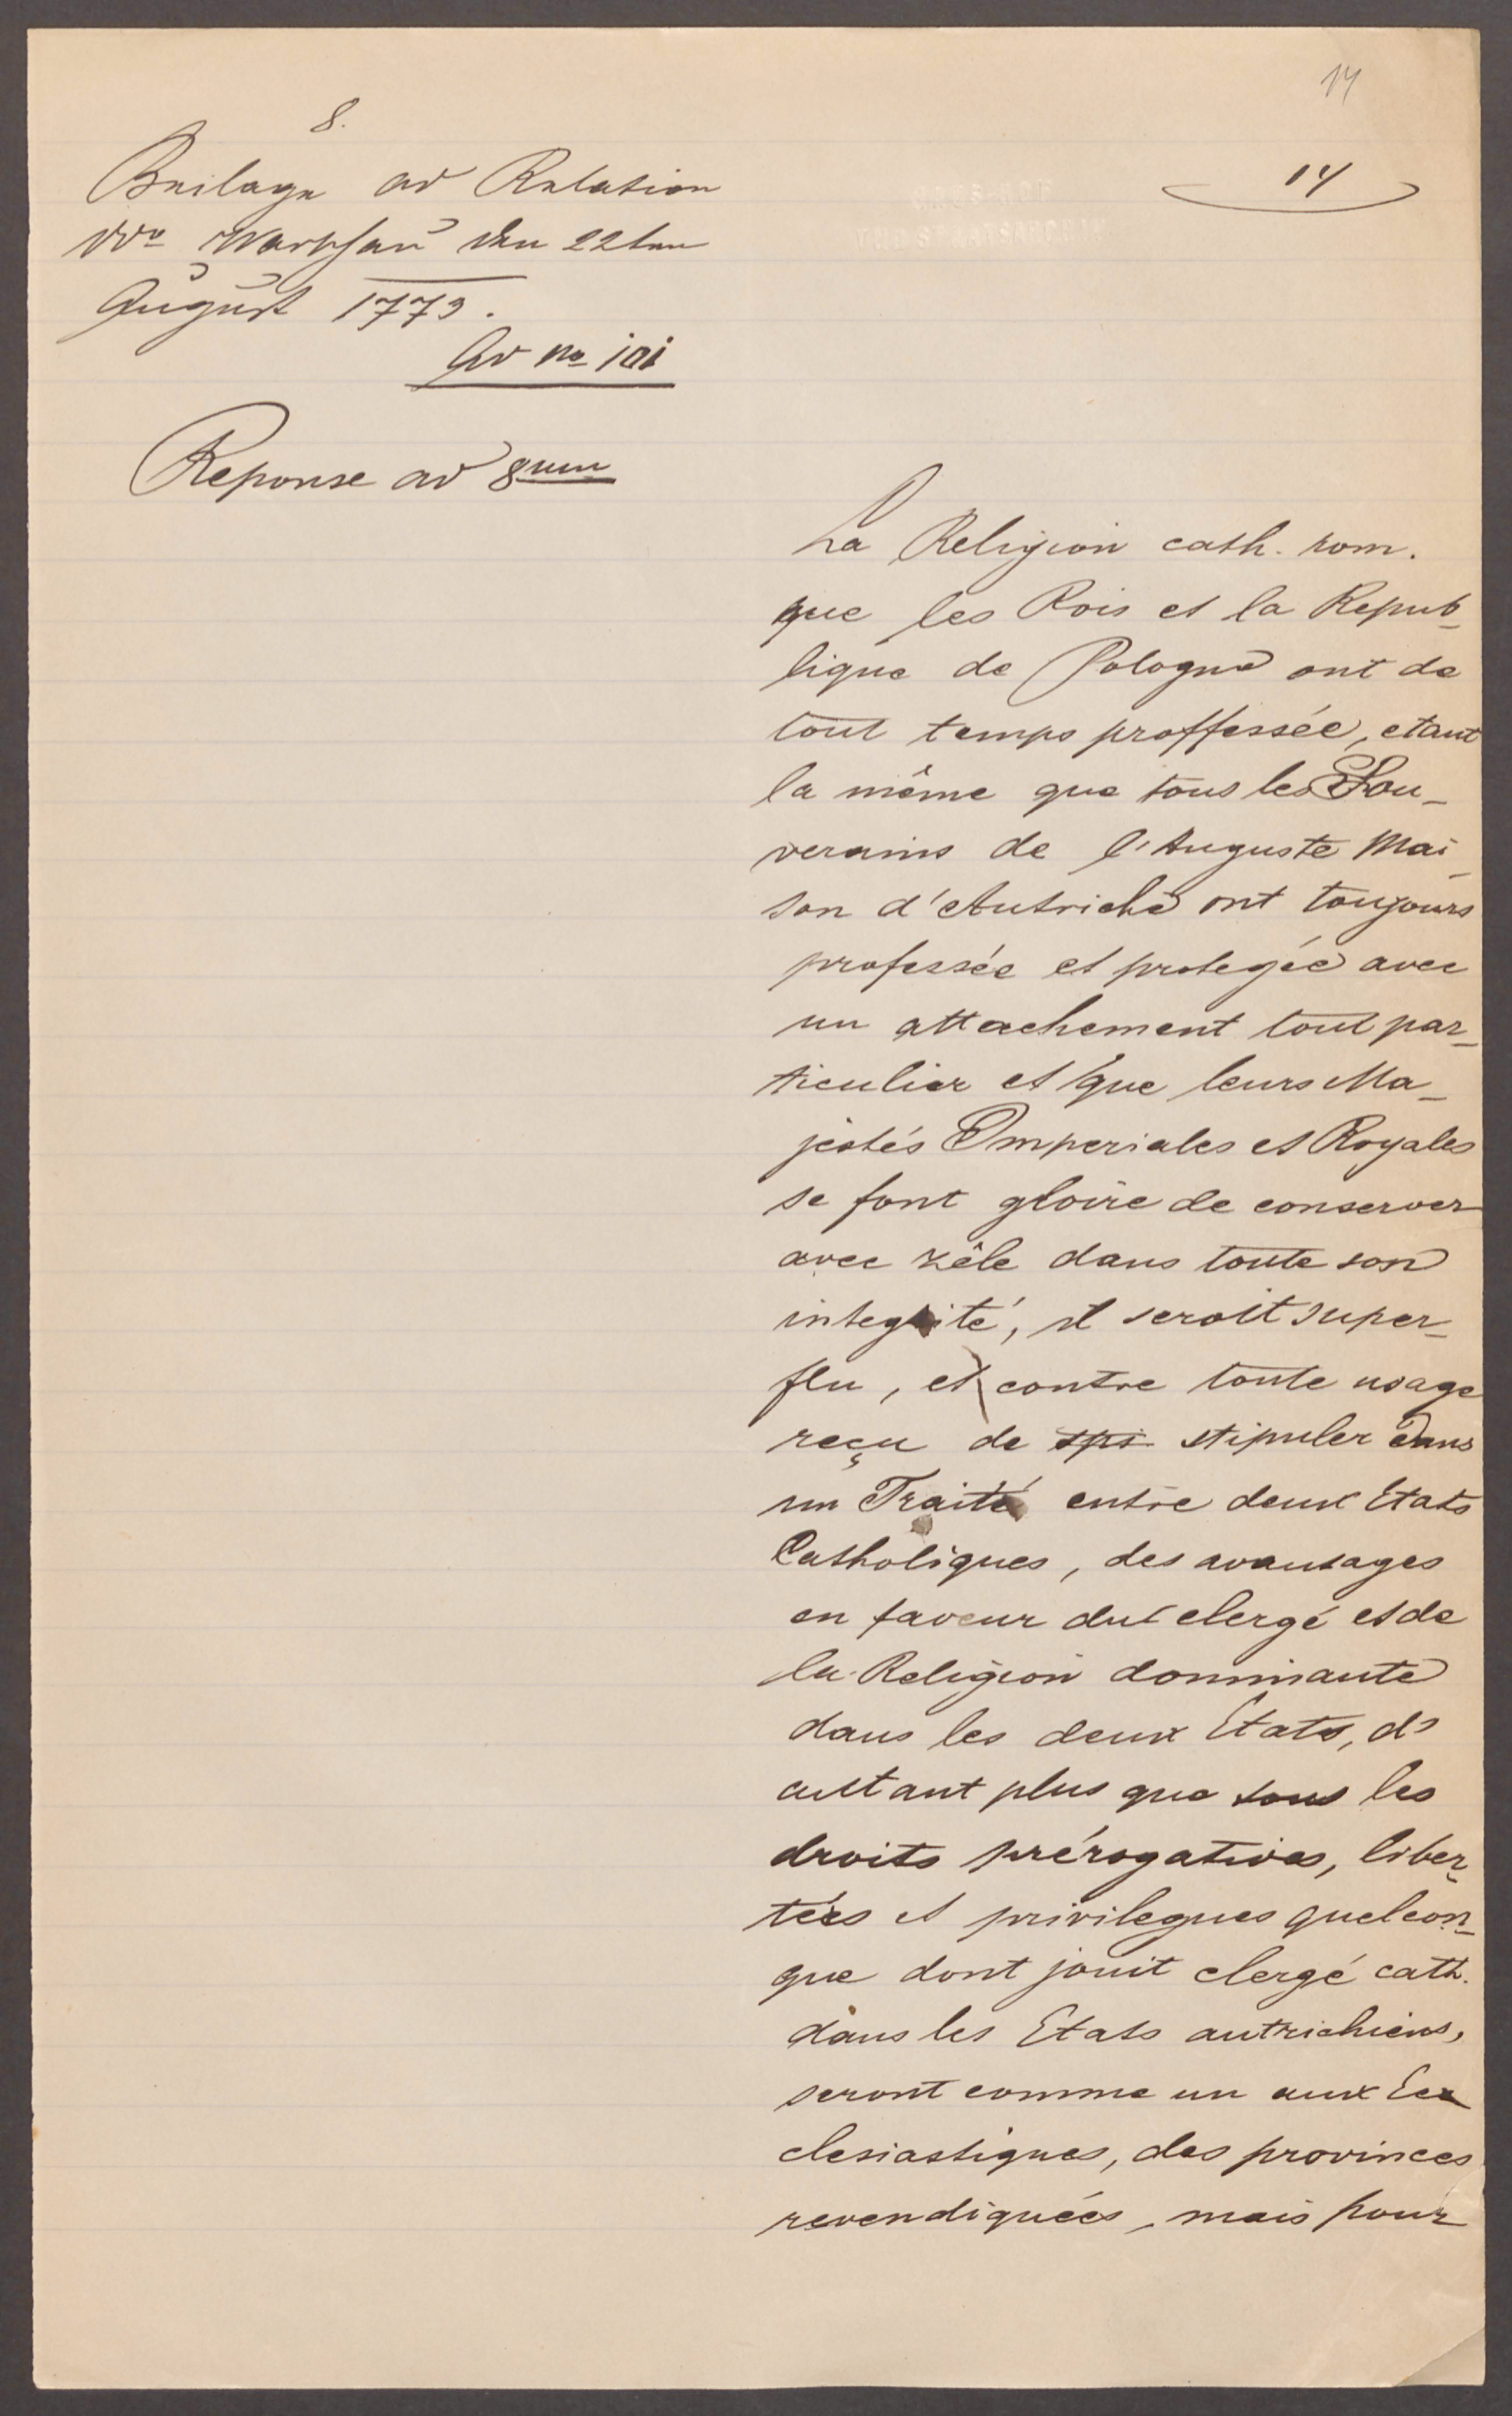 14
8.
14
Beilage ad Relation
ddo Warschau den 22ten
August 1773.
Ad No 101
Reponse ad 8um
La Religion cath. rom.
que les Rois et la Repub_
lique de Pologne ont de
tout temps proffessée, etant
la même que tous les Sou_
verains de l'Auguste Mai_
son d'Autriche ont toujours
professée et protegée avec
un attachement tout par_
ticulier et que leurs Ma_
jestés Imperiales et Royales
se font gloire de conserver
avec zêle dans toute son
integrité, il seroit super_
flu, et contre toute usage
reçu de spi stipuler dans
un Traité entre deux Etats
Catholiques, des avantages
en faveur du clergé et de
la Religion dominante
dans les deux Etats, d'
autant plus que tous les
droits prérogatives, liber_
tées et privilegues quelcon_
que dont jouit clergé cath.
dans les Etats autrichiens,
seront comme un aux Ec
clesiastiques, des provinces
revendiquées, mais pour